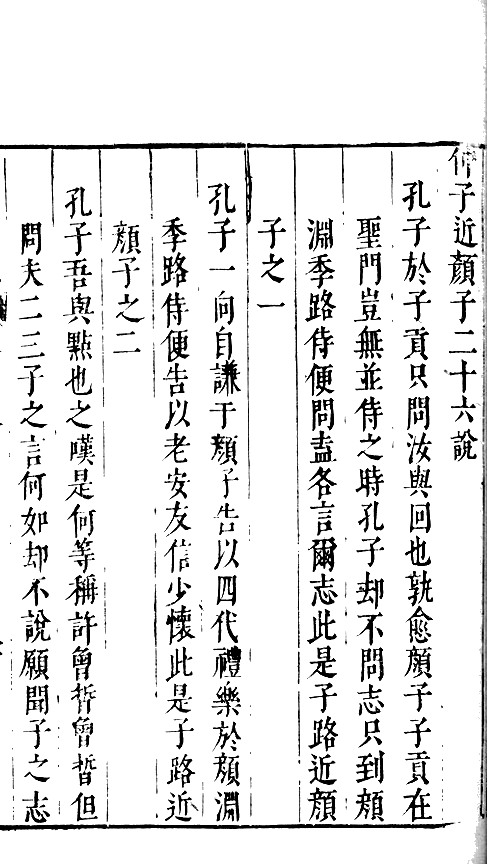 子近顏子二十六說
孔子於子貢只問汝與回也孰愈顏子子貢在
聖門豈無並侍之時孔子却不問志只到頰
淵季路侍便問盍各言爾志此是子路近顏
子之一
孔子一向自謙于顏子告以四代禮樂於顏淵
季路侍便告以老安友信少懷此是子路近
顏子之二
孔子吾與點也之嘆是何等稱許曾晳曾晳但
問夫二三子之言何如却不說願聞子之志